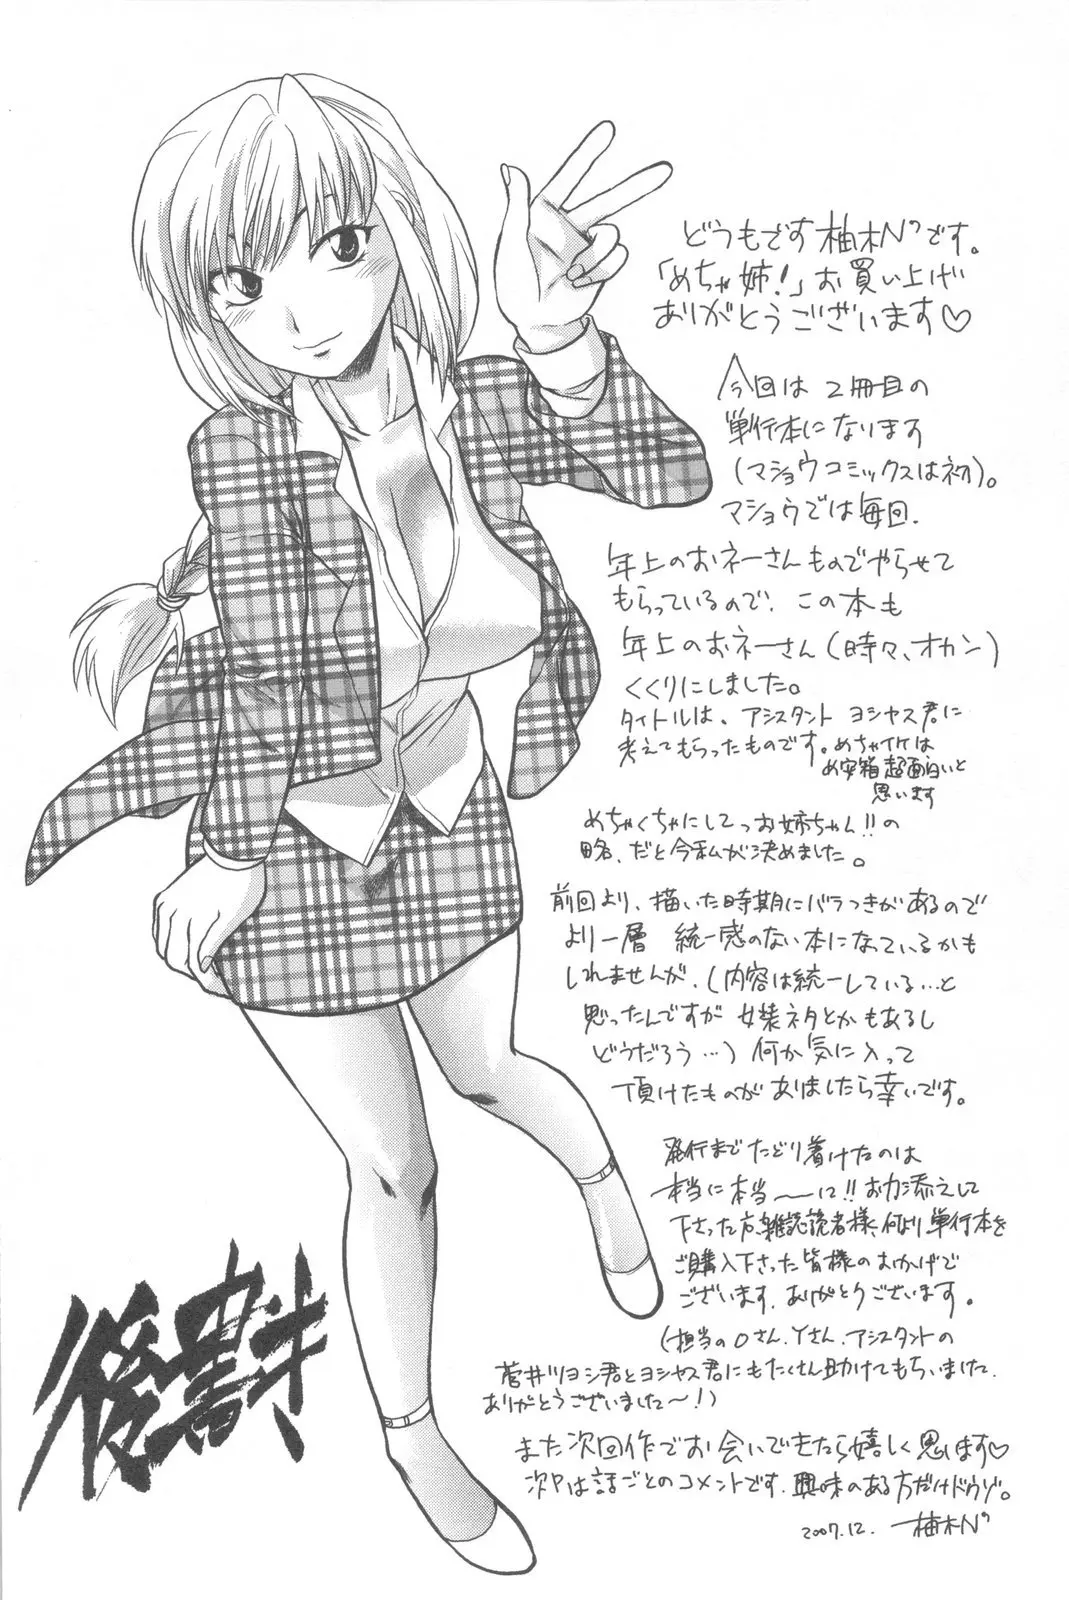 どうもです柚木N'です。
「めちゃ姉！」お買い上げ
ありがとうございます♡
今回は2冊目の
単行本になります
(マショウコミックスは初)。
マショウでは毎回、
年上のおネーさんものでやらせて
もらっているので、この本も
年上のおネーさん(時々、オカン)
くくりにしました。
タイトルは、アシスタント ヨシヤス君に
考えてもらったものです。めちゃイケは
め安箱超面白いと
思います
めちゃくちゃにしてっお姉ちゃん!!の
略、だと今私が決めました。
前回より、描いた時期にバラつきがあるので
より一層 統一感のない本になっているかも
しれませんが、(内容は統一している…と
思ったんですが 女装ネタとかもあるし
どうだろう…) 何か気に入って
頂けたものがありましたら幸いです。
発行までたどり着けたのは
本当に本当〜に!!お力添えして
下さった方、雑誌読者様、何より単行本を
ご購入下さった皆様のおかげで
ございます、ありがとうございます。
(担当のOさん、Yさん、アシスタントの
菅井ツヨシ君とヨシヤス君にもたくさん助けてもらいました、
ありがとうございました〜！)
また次回作でお会いできたら嬉しく思います♡
次Pは話ごとのコメントです、興味のある方だけドウゾ。
2007.12. 柚木N'
後書き